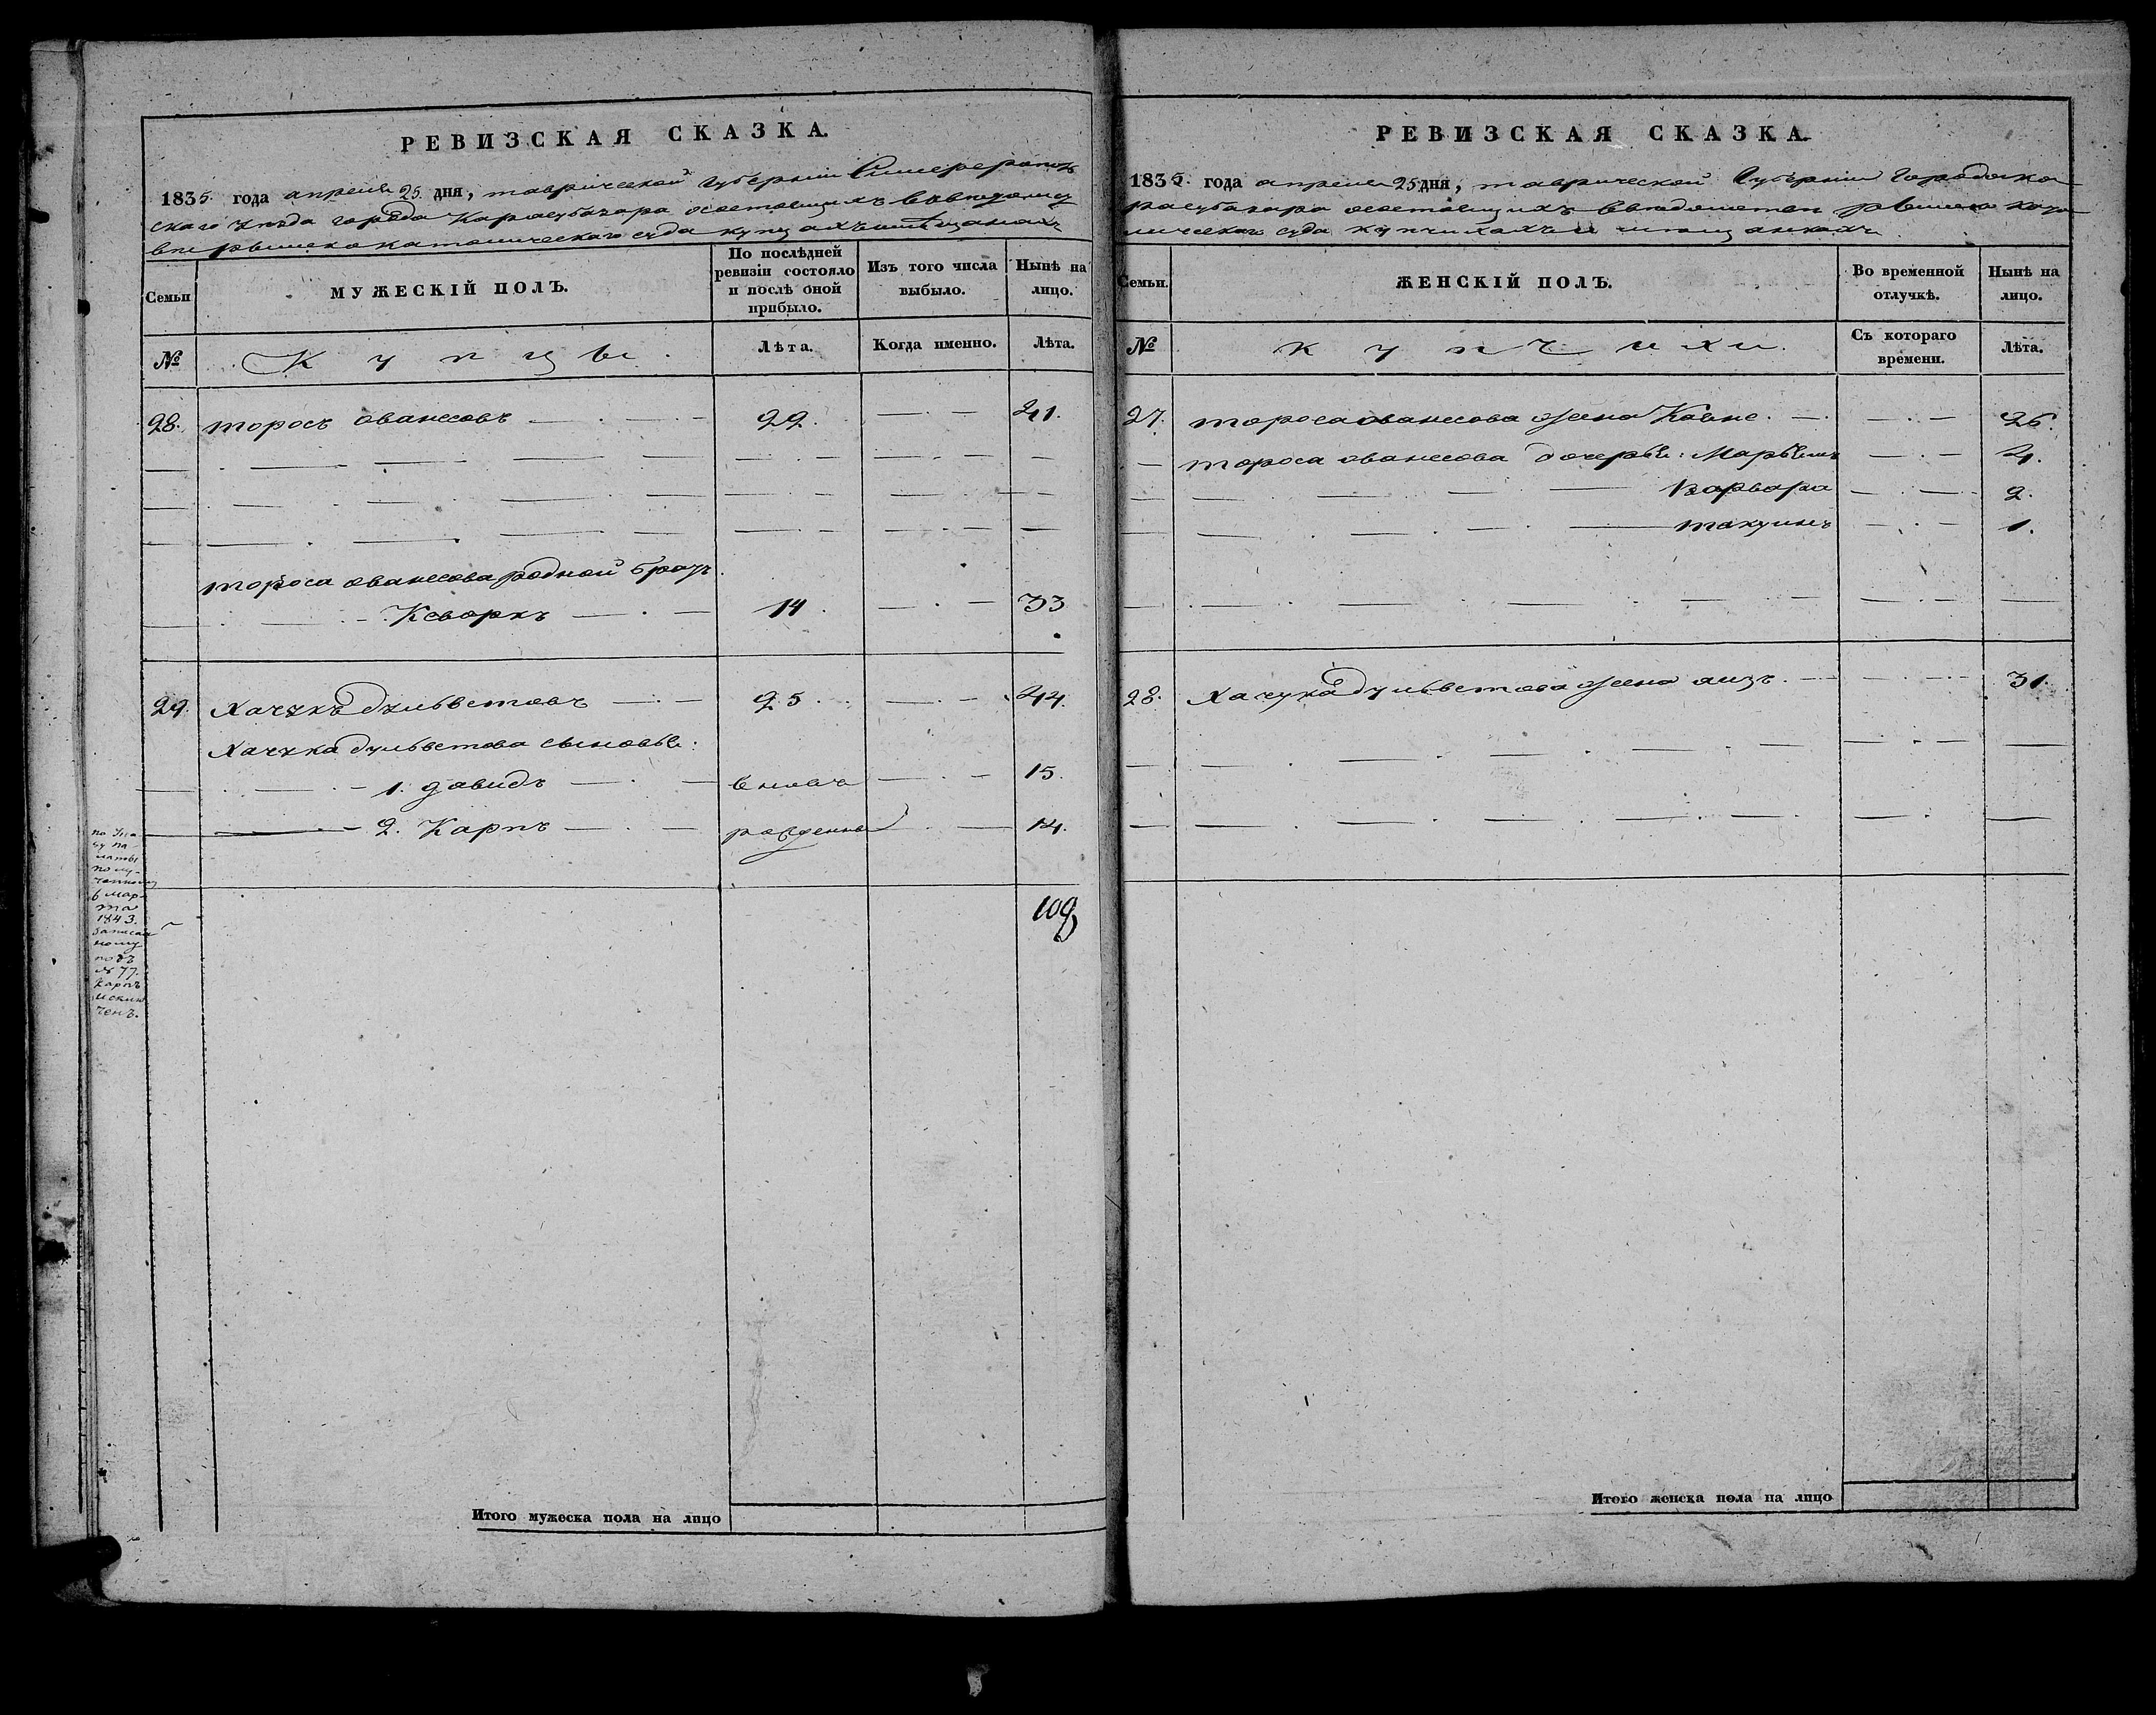 РЕВИЗСКАЯ СКАЗКА.
1835. года апреля 25. дня, таврической Губернии Симферополь
скаго уезда города Карасубазара состоящихъ
римскокатолическаго суда купцахъ
Семьи
МУЖЕСКІЙ ПОЛЪ.
По послѣдней ревизіи состояло и послѣ оной прибыло.
Изъ того числа выбыло.
Нынѣ на лицо.
№
Купцы.
Лѣта.
Когда именно.
Лѣта.
28. торосъ ованесовъ — 22. — 41.
тороса ованесова родной братъ
Кеворкъ — 14. — 33
29. Хачукъ дульветовъ — 25. — 44.
Хачука дульветова сыновья:
1. давидъ — вновь — 15.
2. Карпъ — рожденны — 14.
109
по ука
зу па
латы
полу-
ченному
в мар
та
1843.
записан
ному
подъ
№ 77.
Карпъ
исклю
ченъ.
Итого мужеска пола на лицо
РЕВИЗСКАЯ СКАЗКА.
1835. года апреля 25 дня, таврической Губернии Города ка
расубазара состоящихъ римско като
лическаго суда купчихахъ и мещанкахъ
Семьи.
ЖЕНСКІЙ ПОЛЪ.
Во временной отлучкѣ.
Нынѣ на лицо.
№
Купчихи.
Съ котораго времени.
Лѣта.
27. тороса ованесова жена — 26.
тороса ованесова дочерьи: Марьемъ — 4.
Варвара — 2.
такуинъ — 1.
28. Хачука дульветова жена — 31.
Итого женска пола на лицо